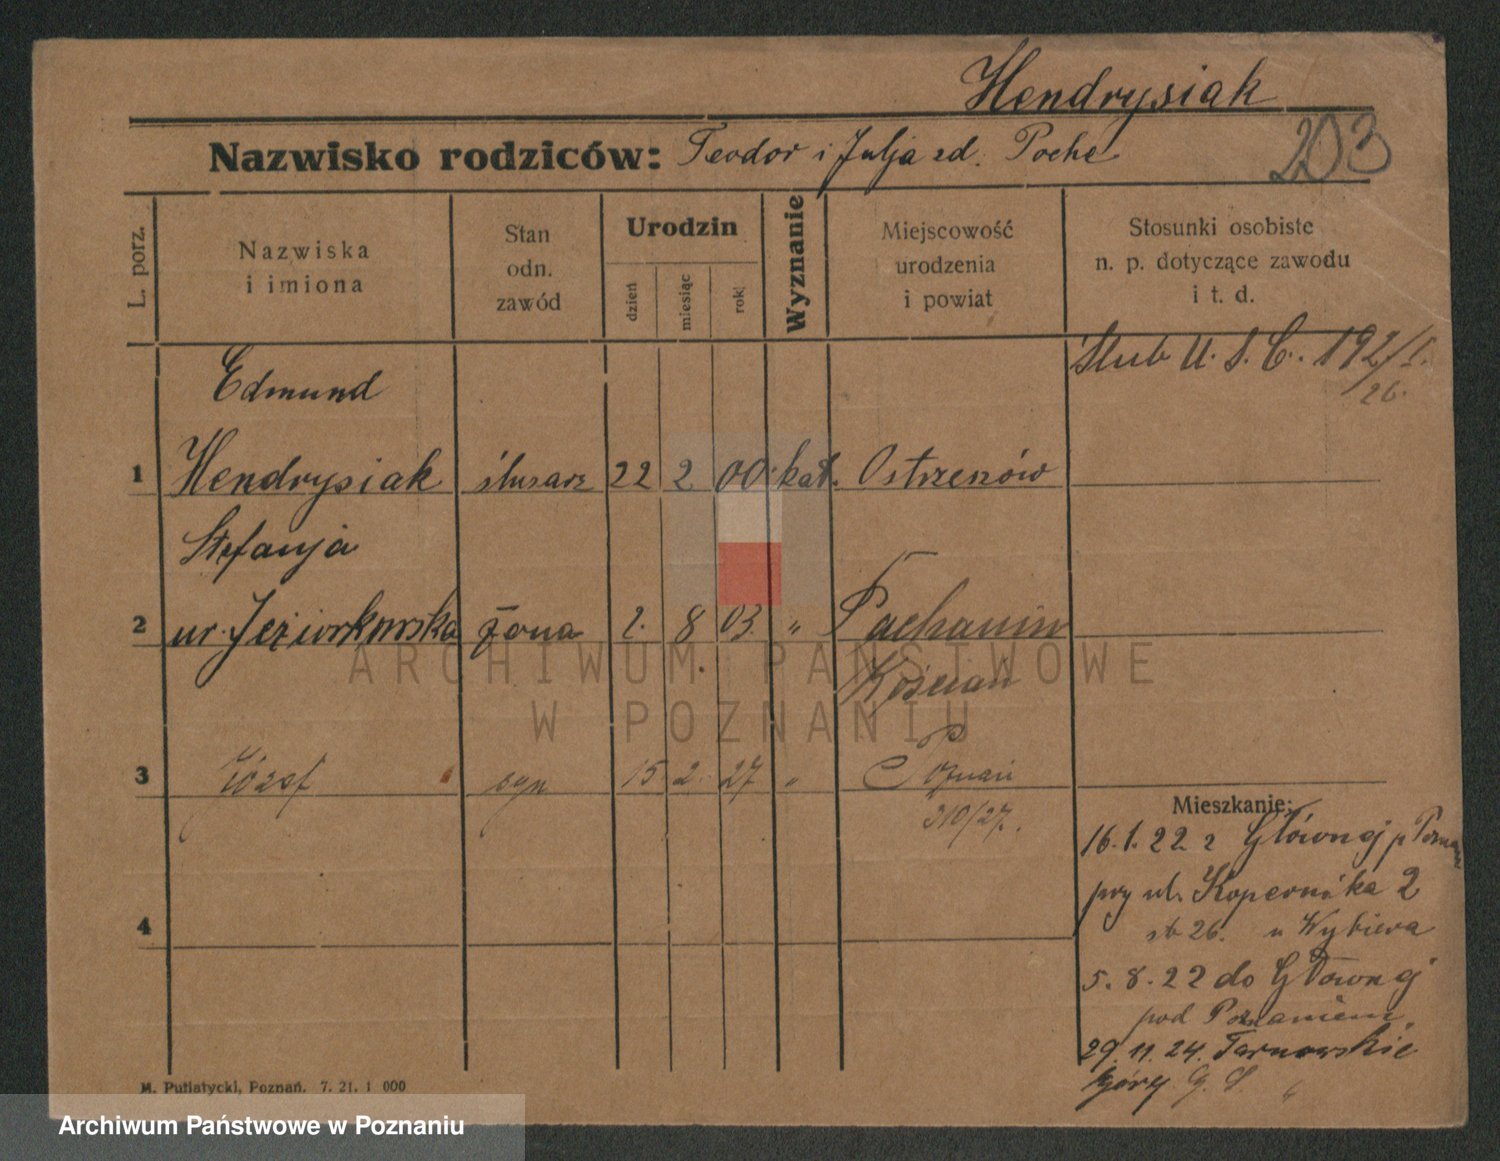 Hendrysiak
Nazwisko rodziców: Teodor i Julja zd. Poche
203
L. porz.
Nazwiska
i imiona
Stan
odn.
zawód
Urodzin
dzień
miesiąc
rok
Wyznanie
Miejscowość
urodzenia
i powiat
Stosunki osobiste
n. p. dotyczące zawodu
i t. d.
Ślub U. S. C.
26.
Edmund
1 Hendrysiak ślusarz 22 2 00 kat. Ostrzeszów
Stefanja
2 ur. Jeziorkowska żona 2. 8 03. „
Kościan
3 Józef syn 15 2 27 „ Poznań
310/27.
Mieszkanie:
16.1.22 z Głównej p Poznań
przy ul. Kopernika 2
26. u Wybiera
4
5.8.22 do Głównej
pod Poznaniem
29.11.24. Tarnowskie
Góry G. S.
M. Putiatycki, Poznań. 7. 21. 1 000
ARCHIWUM PAŃSTWOWE
W POZNANIU
Archiwum Państwowe w Poznaniu